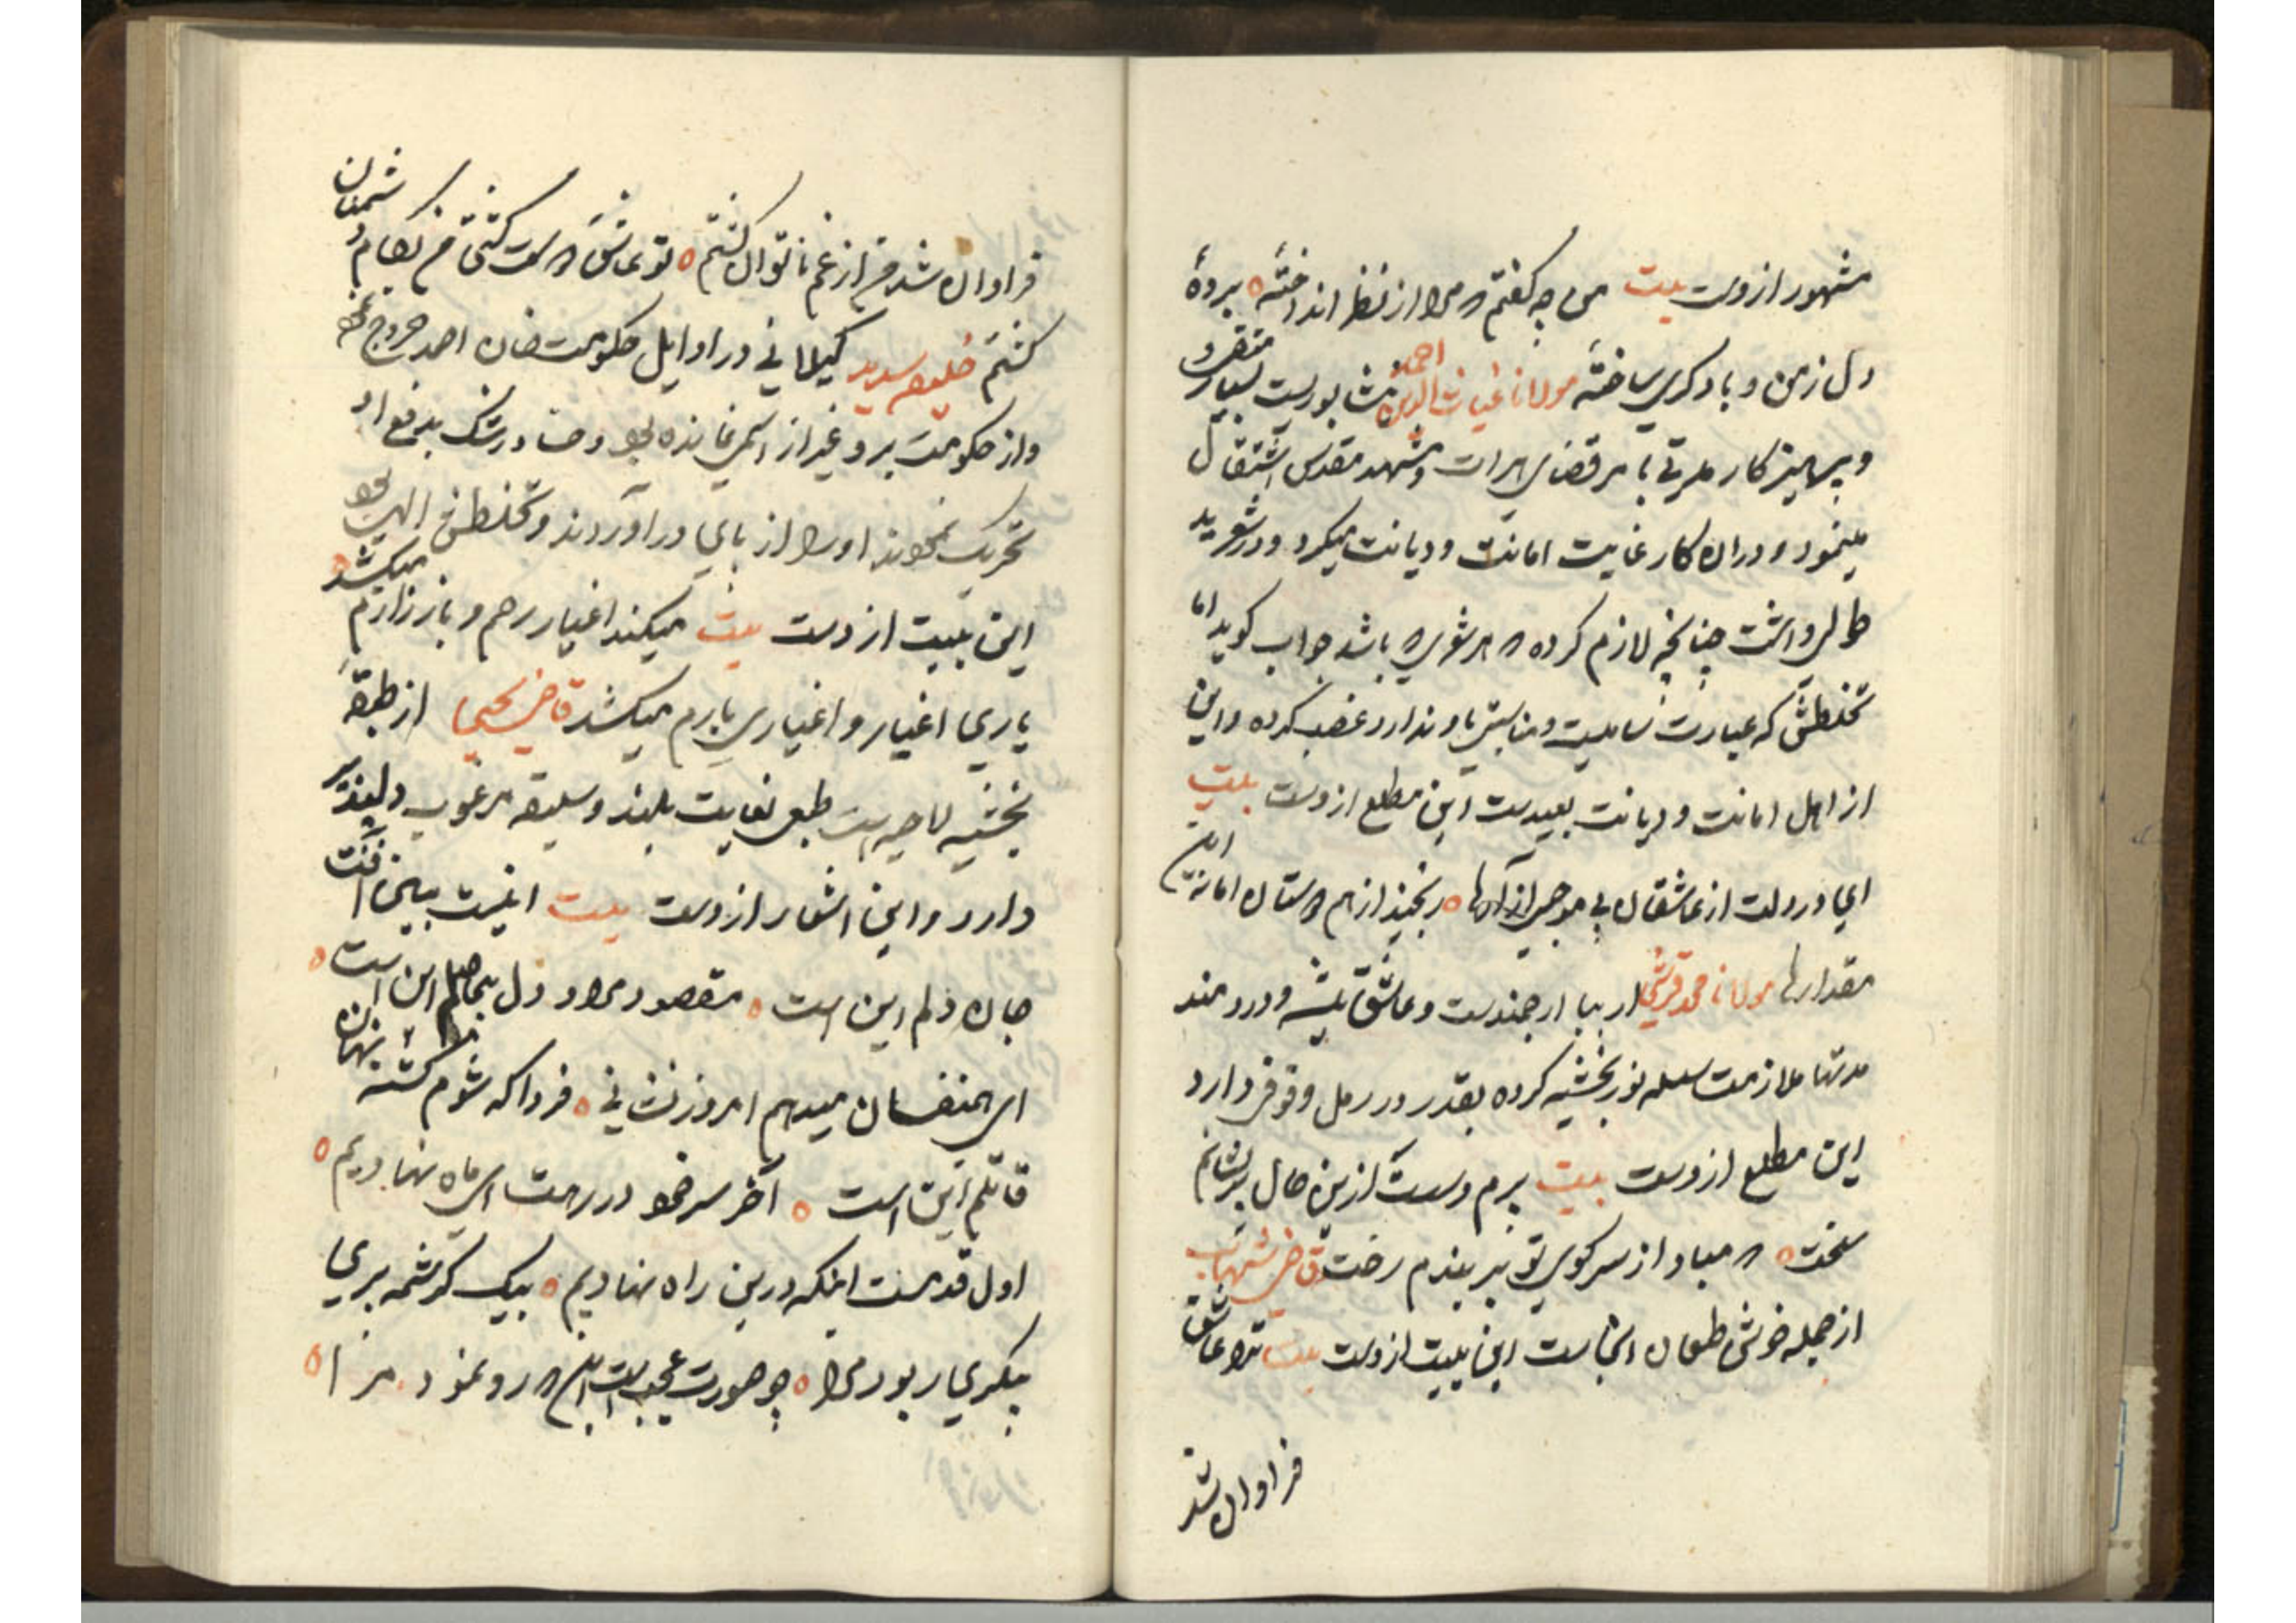 مشهور ازوست بیت من چه گفتم که مرا از نظر انداختهٔ بردهٔ
دل ز من و با دگری ساختهٔ مولانا غیاث الدین احمد نشابوریست بسیار متقی
و پرهیزکار مدتی با مر قضای هرات و مشهد مقدس اشتغال
مینمود و دران کار غایت امانت و دیانت میکرد و در شعر ید
طولی داشت چنانچه لازم کرده که هر شعری که باشد جواب کوید اما
تخلطش که عبارت با او ندارد غصب کرده و این
از اهل امانت و دیانت بعیدست این مطلع ازوست بیت
ای در دلت از عاشقان بی موجبی آزارها رنجیدن از هم دوستان امانه این
مقدارها مولانا محمد قرشی ارجمندست و عاشق پیشه و دردمند
مدتها ملازمت سلسله نوربخشیه کرده بقدر در رمل وقوفی دارد
این مطلع ازوست بیت برم دست ازین حال پریشانم
سخت که مبادا از سر کوی تو بر بندم رخت قاضی شهاب
از جمله خوش طبعان اینجاست این بیت ازوست بیت ترا عاشق
فراوان شد
فراوان شد من از غم ناتوان کشتم تو عاشق دوست کشتی من بکام دشمنان
کشتم خلیفه سدید کیلانی در اوایل حکومت خان احمد خروج نمود
و از حکومت برو غیر از اسمی نمانده بود و در رشک بدفع او
تحریک نمودند او را از پای در آوردند و تخلطش الهی بود
این بیت ازوست بیت میکند اغیار رحم و یار زارم میکشد
یاری اغیار و اغیاری یارم میکشد قاضی یحیی از طبقهٔ
نخشیه لاحیه است طبعی بغایت بلند و سلیقه مرغوب دلپذیر
دارد و این اشعار ازوست بیت اینست ببین آفت
جان و دلم این است مقصود مراد دل بیحاصلم این است
ای همنفسان میدهم امروز نشانی فردا که شوم کشته نهان
قاتلم این است آخر سر خود در رهت ای ماه نهادیم
اول قدمست اینکه درین راه نهادیم بیک کرشمه پری
پیکری ربود مرا چه صورت عجبست این که رو نمود مرا